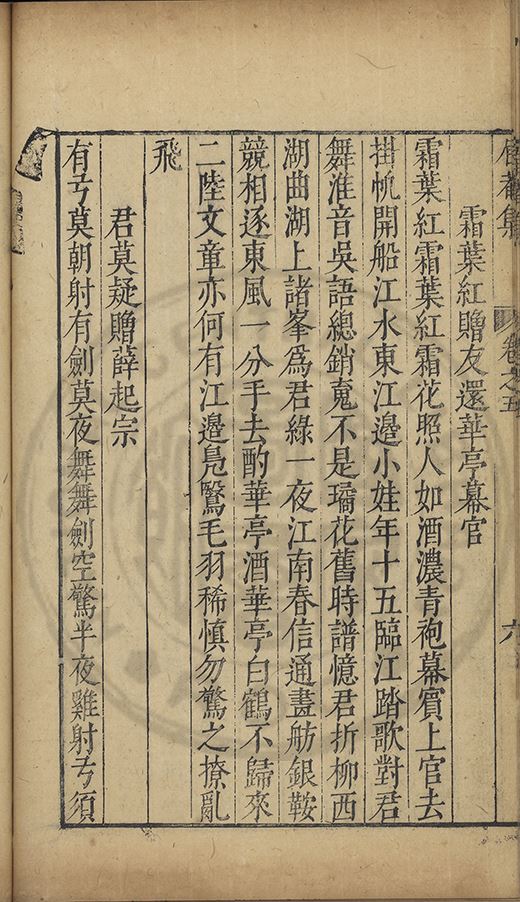 卷之五
六
霜葉紅贈友還華亭幕官
霜葉紅霜葉紅霜花照人如酒濃青袍幕賓上官去
掛帆開船江水東江邉小娃年十五臨江踏歌對君
舞淮音吳語總銷䰟不是璚花舊時譜憶君折柳西
湖曲湖上諸峯爲君綠一夜江南春信通畫舫銀鞍
競相逐東風一分手去酌華亭酒華亭白鶴不歸來
二陸文章亦何有江邉鳧鷖毛羽稀慎勿驚之撩亂
飛
君莫疑贈薛起宗
有弓莫朝射有劍莫夜舞舞劍空驚半夜雞射弓須